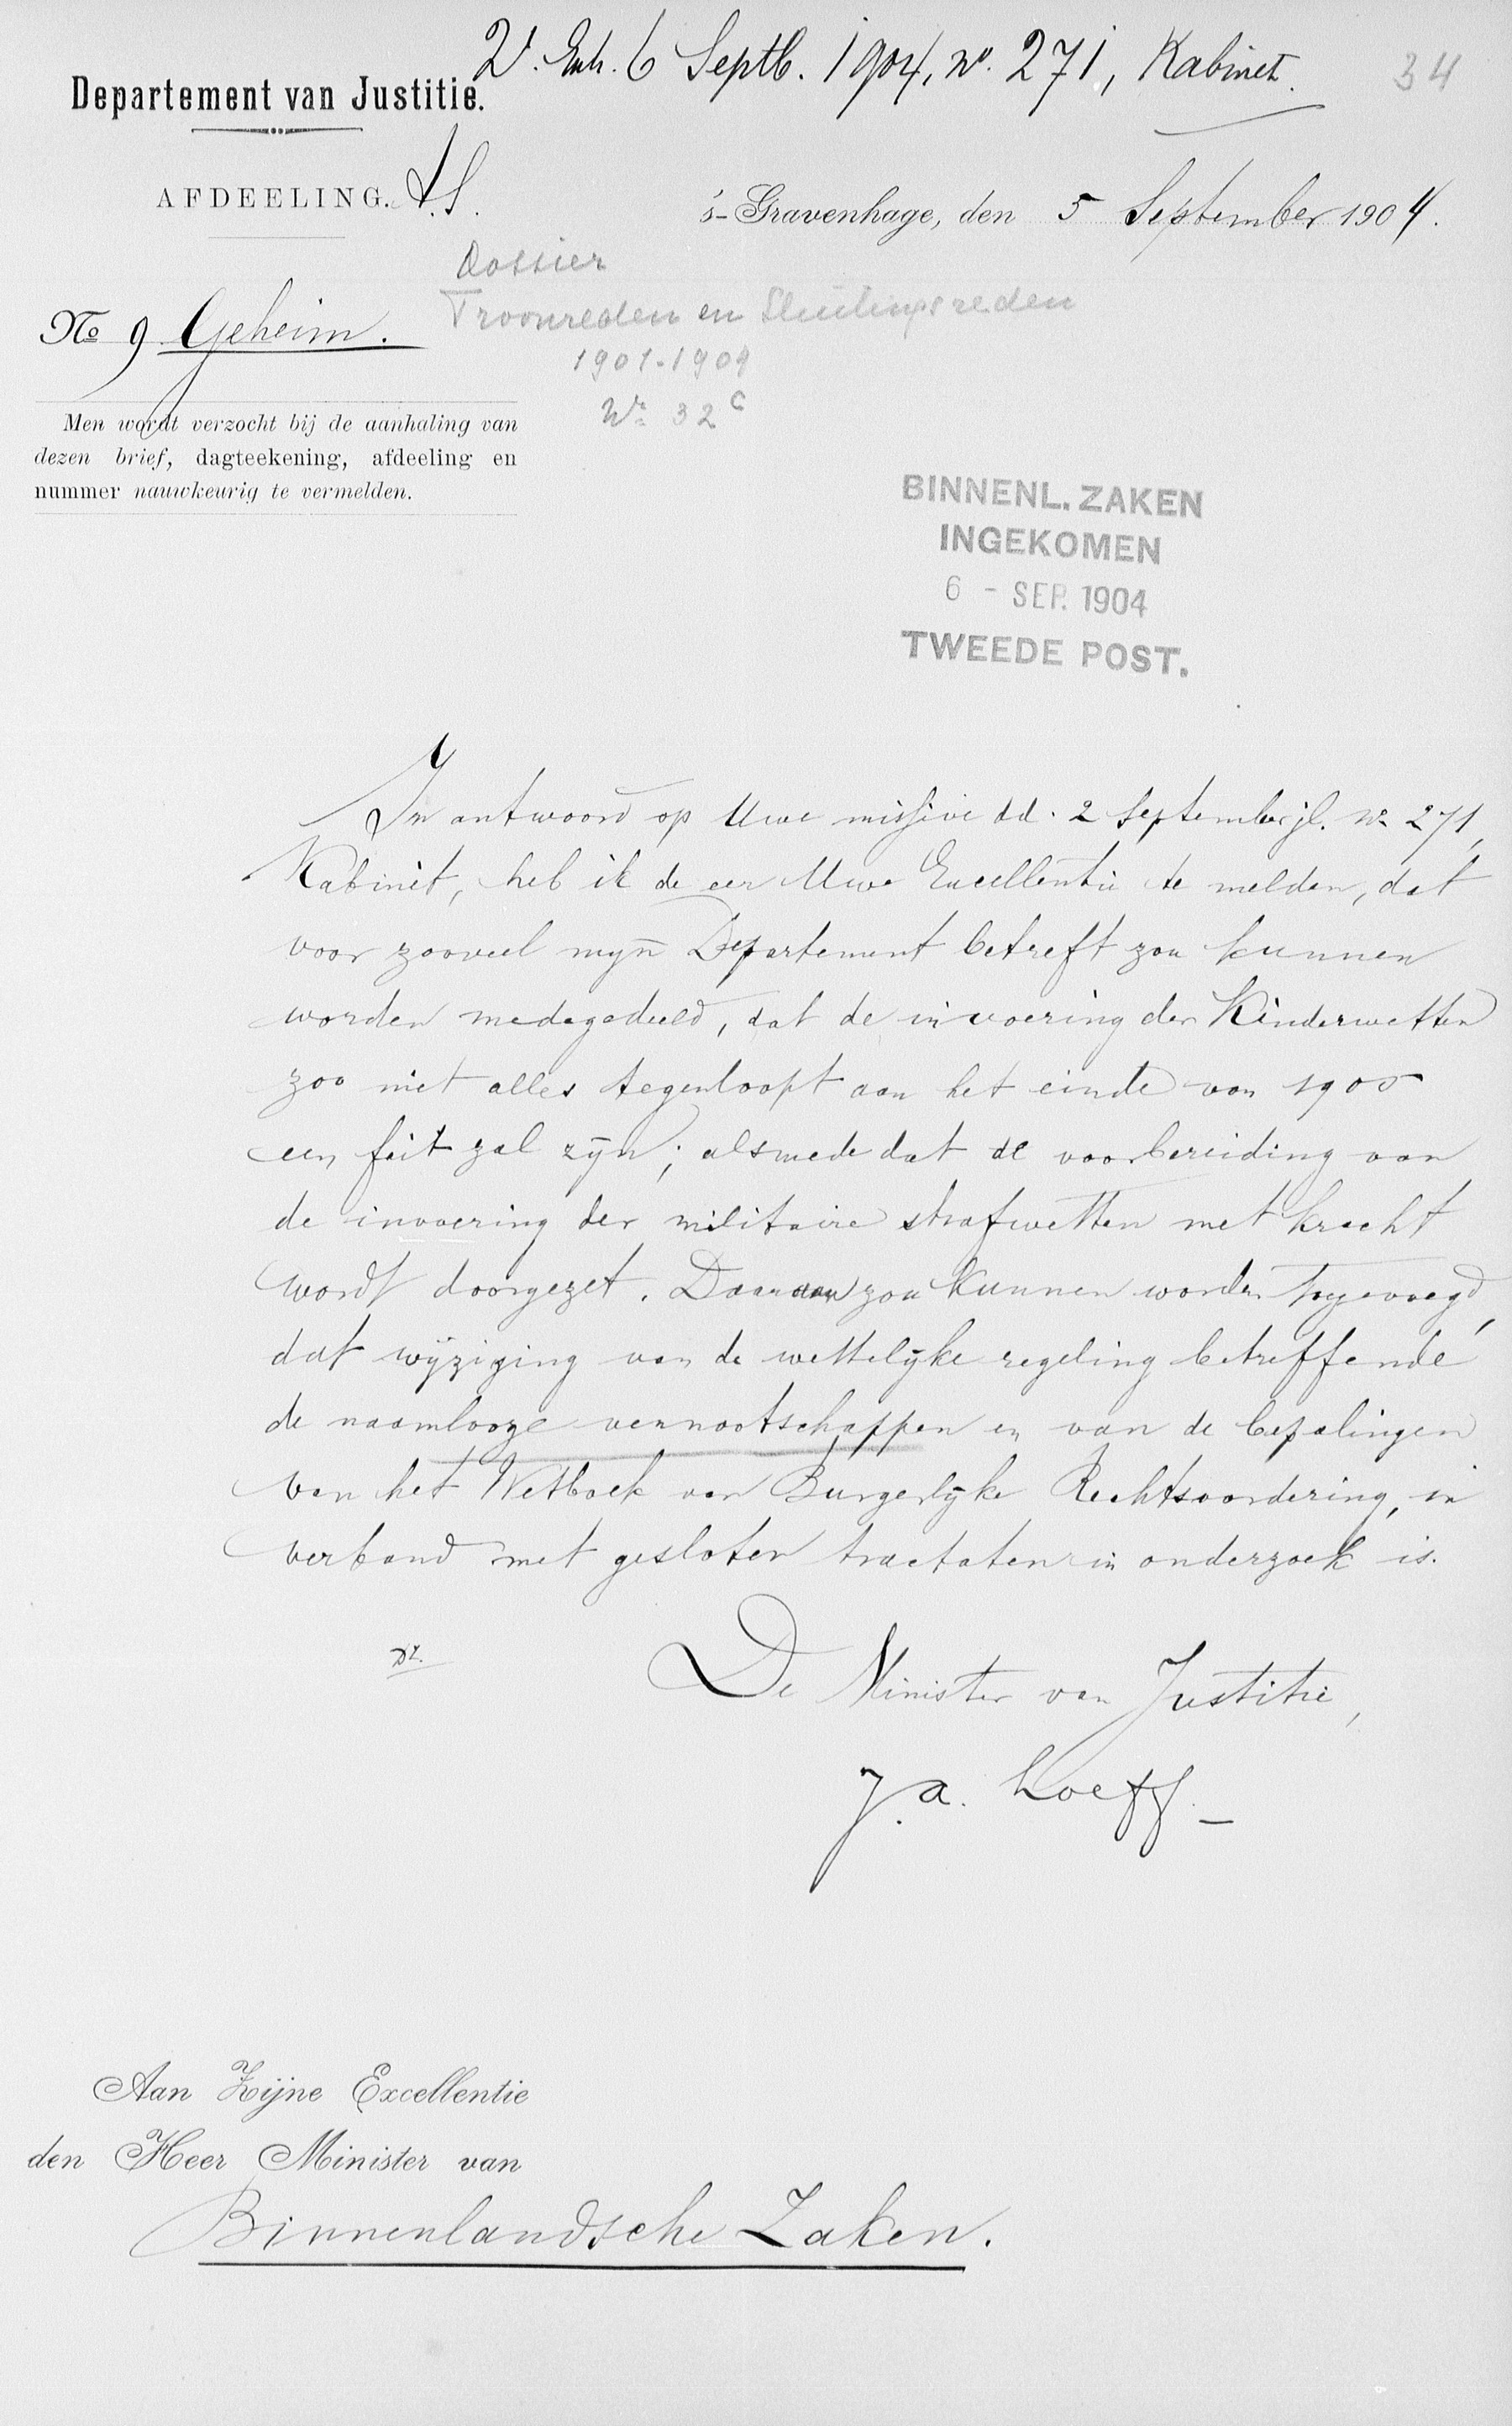 V. Exh. 6 Septb. 1904, No. 271, Kabinet.
34
Departement van Justitie.
AFDEELING. A.S.
's-Gravenhage, den 5 September 1904.
Dossier
Troonreden en Sluitingsreden
1901-1909
No 32 c
No 9 Geheim.
Men wordt verzocht bij de aanhaling van
dezen brief, dagteekening, afdeeling en
nummer nauwkeurig te vermelden.
BINNENL. ZAKEN
INGEKOMEN
6 - SEP. 1904
TWEEDE POST.
In antwoord op Uwe missive dd. 2 September jl. No 271,
Kabinet, heb ik de eer Uwe Excellentie te melden, dat
voor zooveel mijn Departement betreft zou kunnen
worden medegedeeld, dat de invoering der Kinderwetten
zoo niet alles tegenloopt aan het einde van 1905
een feit zal zijn; alsmede dat de voorbereiding van
de invoering der militaire strafwetten met kracht
wordt doorgezet. Daaraan zou kunnen worden toegevoegd,
dat wijziging van de wettelijke regeling betreffende
de naamlooze vennootschappen en van de bepalingen
van het Wetboek van Burgerlijke Rechtsvordering, in
verband met gesloten tractaten in onderzoek is.
De Minister van Justitie,
J. A. Loeff
Aan Zijne Excellentie
den Heer Minister van
Binnenlandsche Zaken.